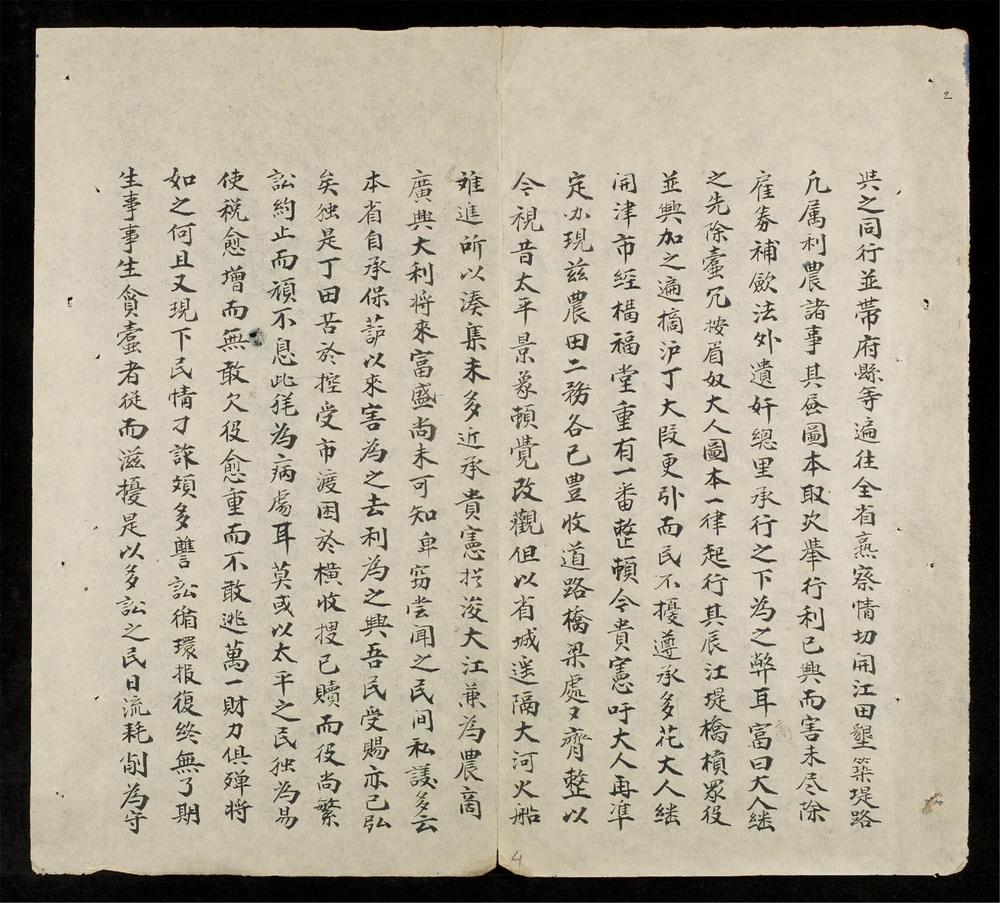 2
共之同行並帶府縣等遍往全省燕察情切開江田墾築堤路
凢属利農諸事其昼圖本取次舉行利已興而害未尽除
雇券補歛法外遺奸總里承行之下為之弊耳富曰大人継
之先除蠹冗按眉奴大人圖本一律起行其辰江堤橋槓眾役
並興加之遍摘沪丁大叚更引而民不擾遵承多花大人継
開津市經楅福堂重有一番整頓今貴憲吁大人再準
定办現兹農田二務各已豊收道路橋梁處〻齊整以
今視昔太平景象頓覺改觀但以省城遥隔大河火船
难進所以湊集未多近承貴憲挖浚大江兼為農啇
廣興大利将來富盛尚未可知卑窃尝聞之民間私議多云
本省自承保䕶以來害為之去利為之興吾民受賜亦已弘
矣独是丁田苦於控受市渡困於横收搜已贖而役尚繁
訟約止而頑不息此毦為病處耳莫或以太平之民独為易
使税愈增而無敢欠役愈重而不敢逃萬一財力俱殫将
如之何且又現下民情刁詐頗多讐訟循環报復終無了期
生事事生貪蠹者從而滋擾是以多訟之民日流耗削為守
4